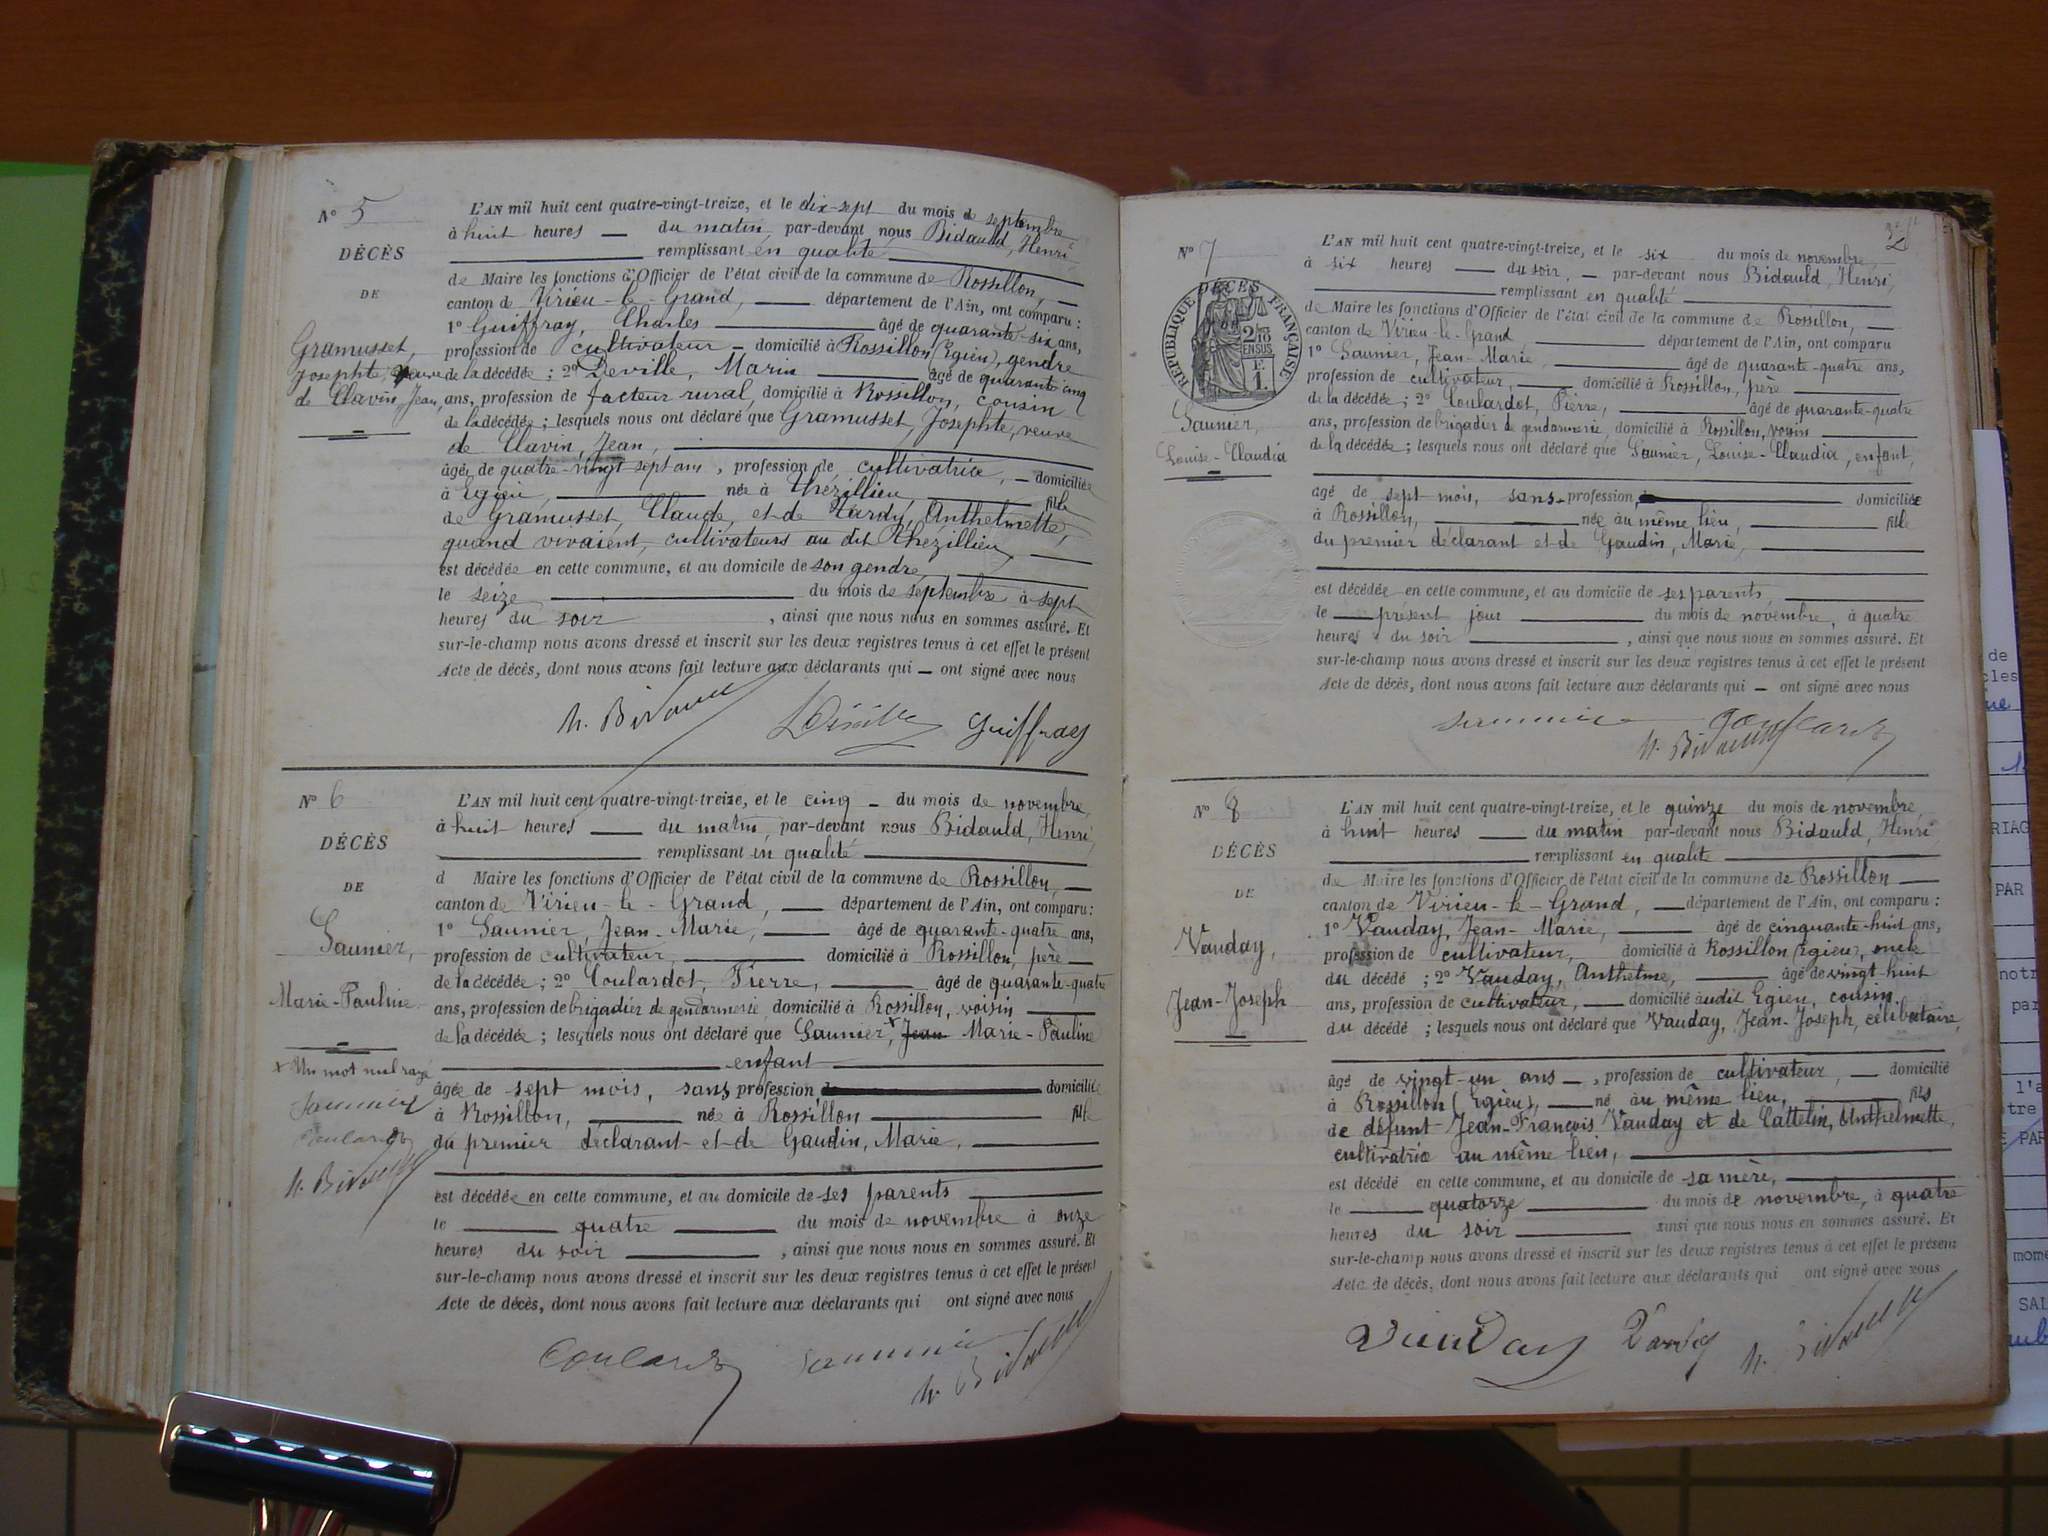 N° 5
DÉCÈS
DE
Gramusset,
Josephte, veuve
de Clavin, Jean,
L'AN mil huit cent quatre-vingt-treize, et le dix-sept du mois de septembre
à huit heures — du matin, par-devant nous Bidauld, Henri
remplissant en qualité
de Maire les fonctions d'Officier de l'état civil de la commune de Rossillon,
canton de Virieu-le-Grand, — département de l'Ain, ont comparu :
1° Guiffray, Charles — âgé de quarante-six ans,
profession de cultivateur — domicilié à Rossillon (Egieu), gendre
de la décédée ; 2° Deville, Marin — âgé de quarante cinq
ans, profession de facteur rural, domicilié à Rossillon, cousin
de la décédée ; lesquels nous ont déclaré que Gramusset, Josephte, veuve
de Clavin, Jean,
âgée de quatre-vingt sept ans, profession de cultivatrice, — domiciliée
à Egieu, — née à Thézillieu, — fille
de Gramusset, Claude, et de Tardy, Anthelmette,
quand vivaient, cultivateurs au dit Thézillieu,
est décédée en cette commune, et au domicile de son gendre
le seize — du mois de septembre à sept
heures du soir , ainsi que nous nous en sommes assuré. Et
sur-le-champ nous avons dressé et inscrit sur les deux registres tenus à cet effet le présent
Acte de décès, dont nous avons fait lecture aux déclarants qui — ont signé avec nous
H. Bidauld Deville Guiffray
N° 6
DÉCÈS
DE
Saunier,
Marie-Pauline
x Un mot nul rayé
Saunier
Coulardot
H. Bidauld
L'AN mil huit cent quatre-vingt-treize, et le cinq — du mois de novembre,
à huit heures — du matin, par-devant nous Bidauld, Henri,
remplissant en qualité
d Maire les fonctions d'Officier de l'état civil de la commune de Rossillon,
canton de Virieu-le-Grand, — département de l'Ain, ont comparu :
1° Saunier, Jean-Marie, — âgé de quarante-quatre ans,
profession de cultivateur, — domicilié à Rossillon, père
de la décédée ; 2° Coulardot, Pierre, — âgé de quarante-quatre
ans, profession de brigadier de gendarmerie domicilié à Rossillon, voisin
de la décédée ; lesquels nous ont déclaré que Saunier, x Jean Marie-Pauline
enfant
âgée de sept mois, sans profession domiciliée
à Rossillon, — née à Rossillon — fille
du premier déclarant et de Gaudin, Marie,
est décédée en cette commune, et au domicile de ses parents
le — quatre — du mois de novembre à onze
heures du soir — , ainsi que nous nous en sommes assuré. Et
sur-le-champ nous avons dressé et inscrit sur les deux registres tenus à cet effet le présent
Acte de décès, dont nous avons fait lecture aux déclarants qui ont signé avec nous
Coulardot Saunier H. Bidauld
N° 7
DÉCÈS
RÉPUBLIQUE FRANÇAISE
2/10
EN SUS
F.
1.
Saunier,
Louise-Claudia
L'AN mil huit cent quatre-vingt-treize, et le six du mois de novembre
à six heures — du soir, — par-devant nous Bidauld, Henri,
remplissant en qualité
de Maire les fonctions d'Officier de l'état civil de la commune de Rossillon, —
canton de Virieu-le-Grand, — département de l'Ain, ont comparu
1° Saunier, Jean-Marie, — âgé de quarante-quatre ans,
profession de cultivateur, — domicilié à Rossillon, père
de la décédée ; 2° Coulardot, Pierre, — âgé de quarante-quatre
ans, profession de brigadier de gendarmerie domicilié à Rossillon, voisin
de la décédée ; lesquels nous ont déclaré que Saunier, Louise-Claudia, enfant,
âgé de sept mois, sans profession, domiciliée
à Rossillon, — née au même lieu, — fille
du premier déclarant et de Gaudin, Marie,
est décédée en cette commune, et au domicile de ses parents,
le — présent jour — du mois de novembre, à quatre
heures du soir — , ainsi que nous nous en sommes assuré. Et
sur-le-champ nous avons dressé et inscrit sur les deux registres tenus à cet effet le présent
Acte de décès, dont nous avons fait lecture aux déclarants qui — ont signé avec nous
Saunier Coulardot
H. Bidauld
N° 8
DÉCÈS
DE
Vauday,
Jean-Joseph
L'AN mil huit cent quatre-vingt-treize, et le quinze du mois de novembre,
à huit heures — du matin par-devant nous Bidauld, Henri
remplissant en qualité
de Maire les fonctions d'Officier de l'état civil de la commune de Rossillon
canton de Virieu-le-Grand, — département de l'Ain, ont comparu :
1° Vauday, Jean-Marie, — âgé de cinquante-huit ans,
profession de cultivateur, domicilié à Rossillon (Egieu), oncle
du décédé ; 2° Vauday, Anthelme, — âgé de vingt-huit
ans, profession de cultivateur, — domicilié audit Egieu, cousin
du décédé ; lesquels nous ont déclaré que Vauday, Jean-Joseph, célibataire,
âgé de vingt-un ans —, profession de cultivateur, — domicilié
à Rossillon (Egieu), — né au même lieu, — fils
de défunt Jean-François Vauday et de Cattelin, Anthelmette,
cultivatrice au même lieu,
est décédé en cette commune, et au domicile de sa mère,
le — quatorze — du mois de novembre, à quatre
heures du soir — ainsi que nous nous en sommes assuré. Et
sur-le-champ nous avons dressé et inscrit sur les deux registres tenus à cet effet le présent
Acte de décès, dont nous avons fait lecture aux déclarants qui ont signé avec nous
Vauday H. Bidauld
de
cles
RIAG
PAR
notr
par
l'a
PAR
mome
SAL